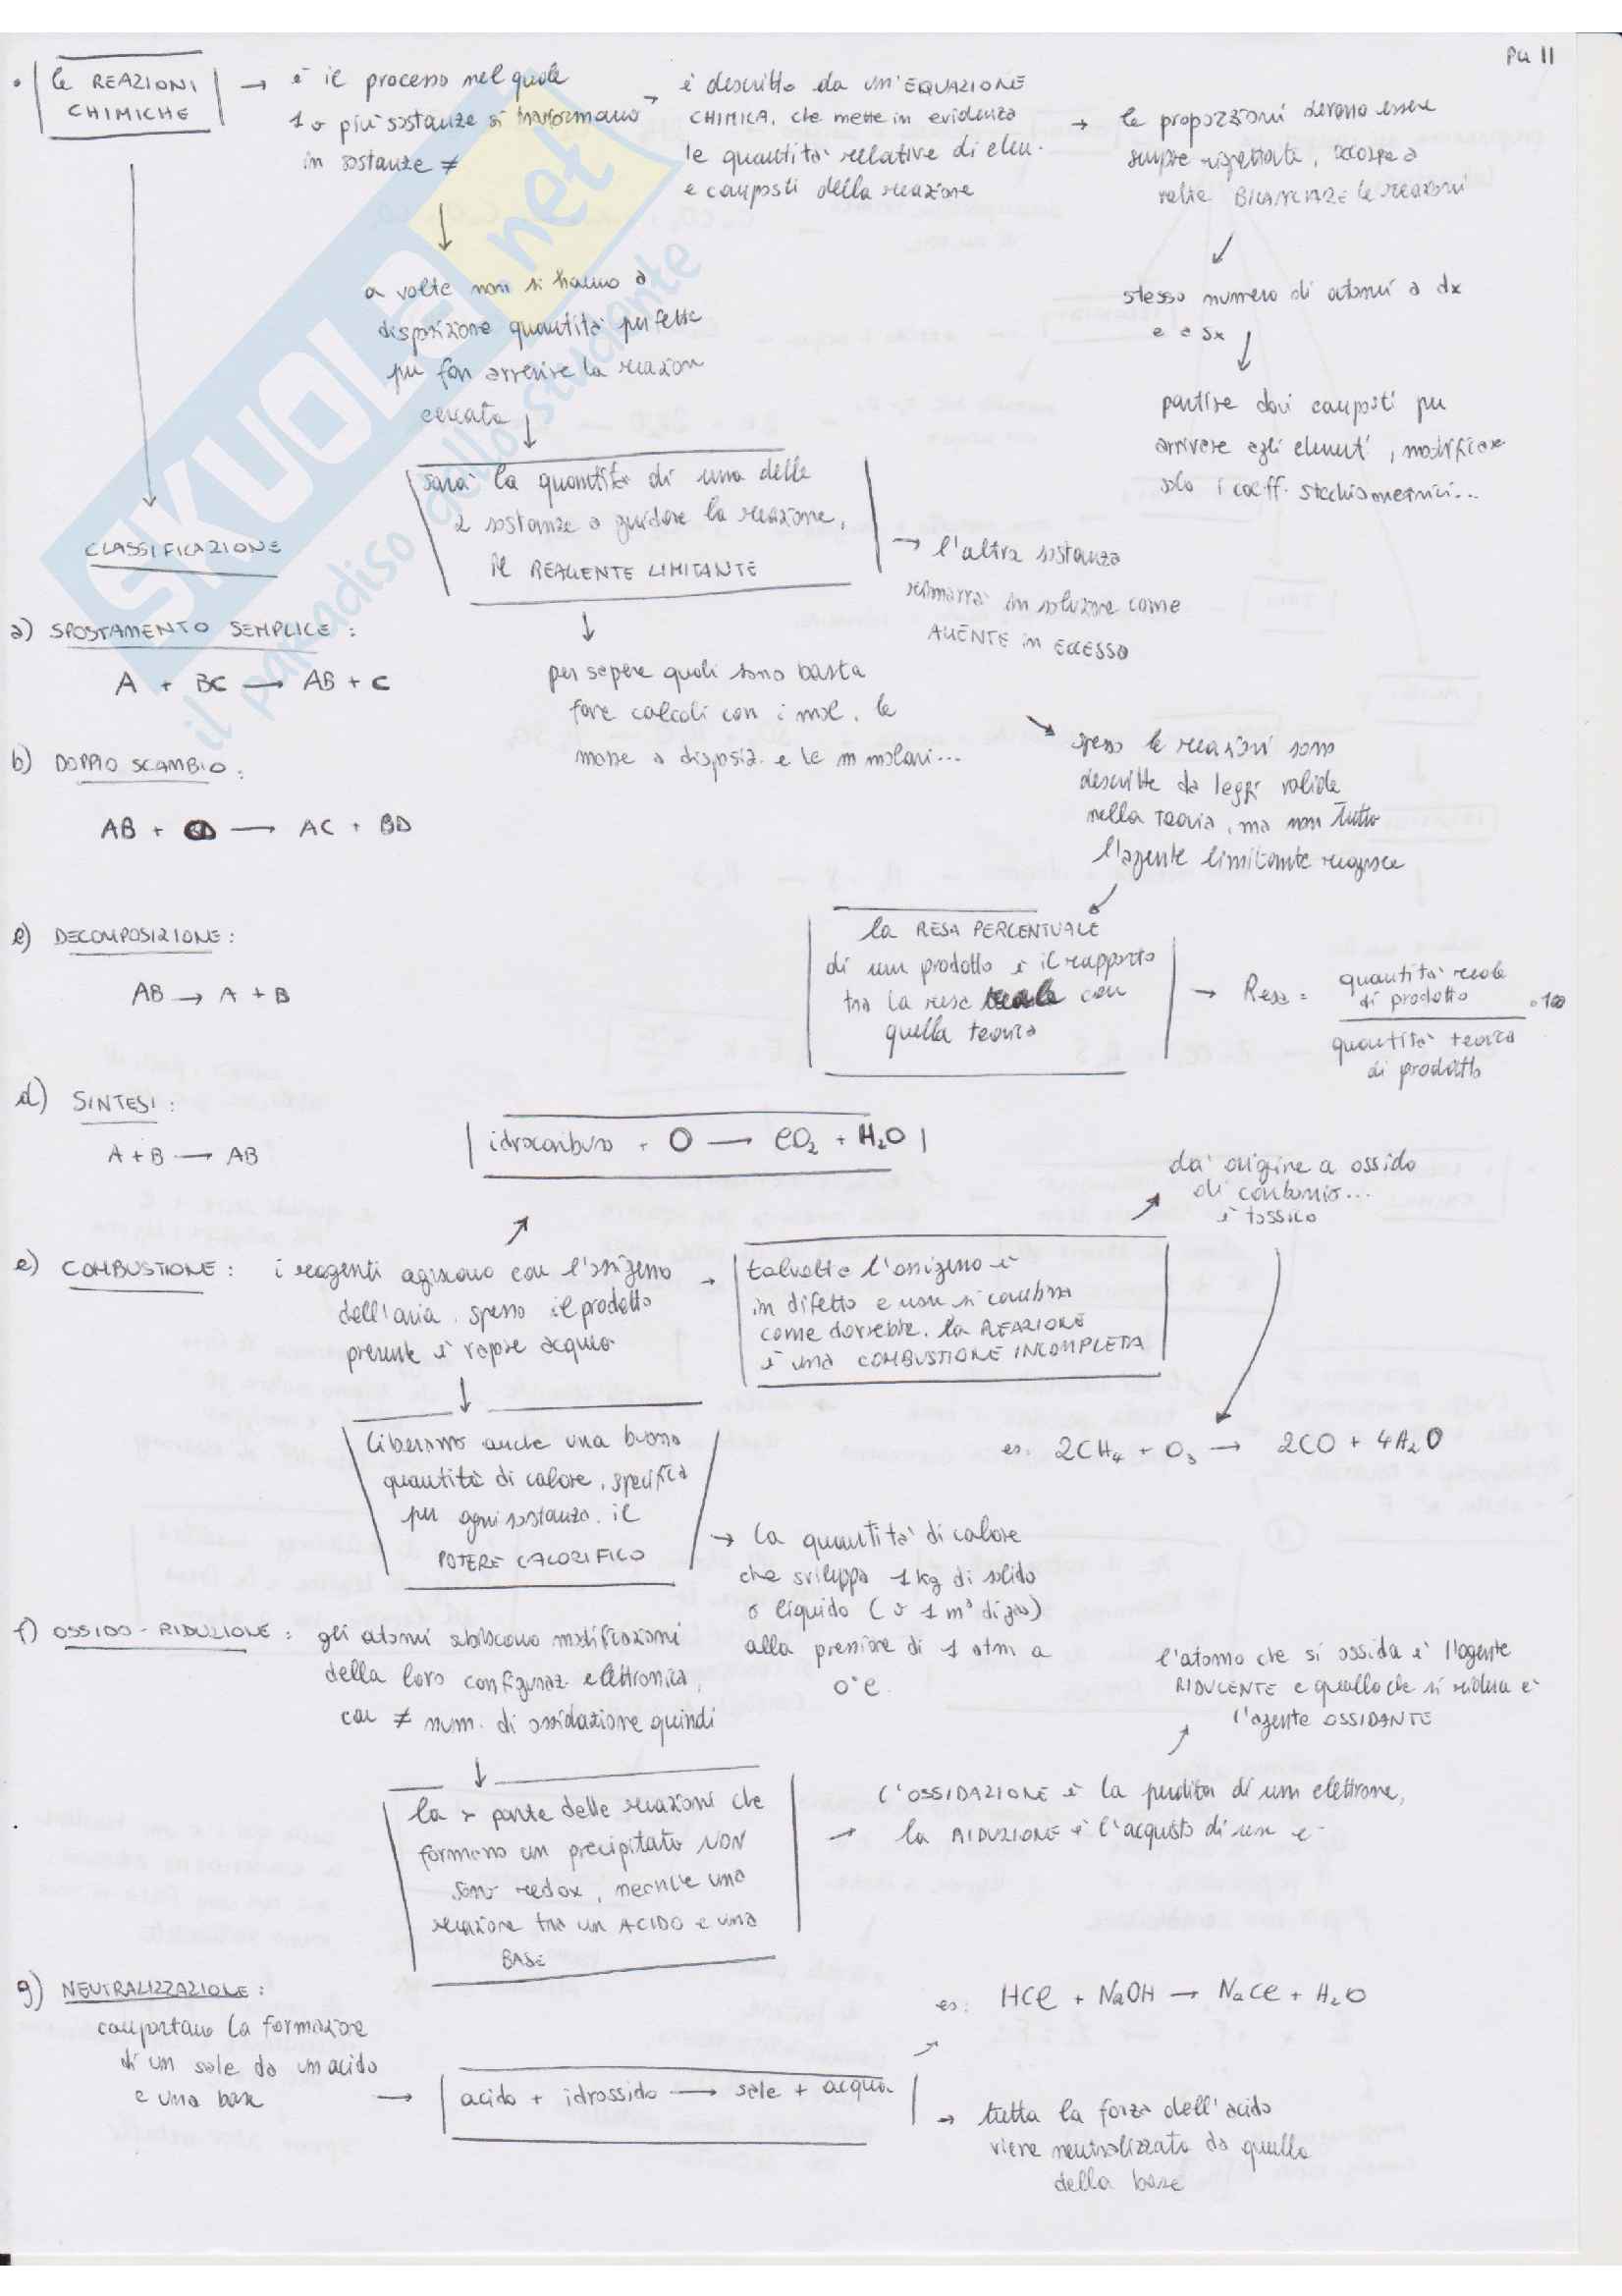 PG 11
• le REAZIONI
CHIMICHE
→ è il processo nel quale
1 o più sostanze si trasformano
in sostanze ≠
→ è descritto da un'EQUAZIONE
CHIMICA, che mette in evidenza
le quantità relative di elem.
e composti della reazione
→ le proporzioni devono essere
sempre rispettate, occorre a
volte BILANCIARE le reazioni
stesso numero di atomi a dx
e a sx
partire dai composti per
arrivare agli elementi, modificare
solo i coeff. stechiometrici...
a volte non si hanno a
disposizione quantità perfette
per far avvenire la reazion
cercata
sarà la quantità di una delle
2 sostanze a guidare la reazione,
il REAGENTE LIMITANTE
→ l'altra sostanza
rimarrà in soluzione come
AGENTE in ECCESSO
per sapere quali sono basta
fare calcoli con i mol, le
masse a disposiz. e le m molari...
spesso le reazioni sono
descritte da leggi valide
nella teoria, ma non tutto
l'agente limitante reagisce
la RESA PERCENTUALE
di un prodotto è il rapporto
tra la resa reale con
quella teorica
→ Resa = quantità reale
di prodotto
quantità teorica
di prodotto
· 100
CLASSIFICAZIONE
a) SPOSTAMENTO SEMPLICE :
A + BC → AB + C
b) DOPPIO SCAMBIO :
AB + CD → AC + BD
c) DECOMPOSIZIONE :
AB → A + B
d) SINTESI :
A + B → AB
idrocarburo + O → CO₂ + H₂O
e) COMBUSTIONE : i reagenti agiscono con l'ossigeno
dell'aria. spesso il prodotto
presente è vapore acqueo
→ talvolta l'ossigeno è
in difetto e non si combina
come dovrebbe. la REAZIONE
è una COMBUSTIONE INCOMPLETA
da' origine a ossido
di carbonio...
è tossico
es. 2CH₄ + O₃ → 2CO + 4H₂O
liberano anche una buona
quantità di calore, specifica
per ogni sostanza. il
POTERE CALORIFICO
→ la quantità di calore
che sviluppa 1 kg di solido
o liquido (o 1 m³ di gas)
alla pressione di 1 atm a
0°C.
f) OSSIDO-RIDUZIONE : gli atomi subiscono modificazioni
della loro configuraz. elettronica,
con ≠ num. di ossidazione quindi
la > parte delle reazioni che
formano un precipitato NON
sono redox, neanche una
reazione tra un ACIDO e una
BASE
→ l'OSSIDAZIONE è la perdita di un elettrone,
la RIDUZIONE è l'acquisto di un e⁻
l'atomo che si ossida è l'agente
RIDUCENTE e quello che si riduce è
l'agente OSSIDANTE
g) NEUTRALIZZAZIONE :
comportano la formazione
di un sale da un acido
e una base
→ acido + idrossido → sale + acqua
es. HCl + NaOH → NaCl + H₂O
→ tutta la forza dell'acido
viene neutralizzata da quella
della base
SKUOLA.net
il paradiso dello studente